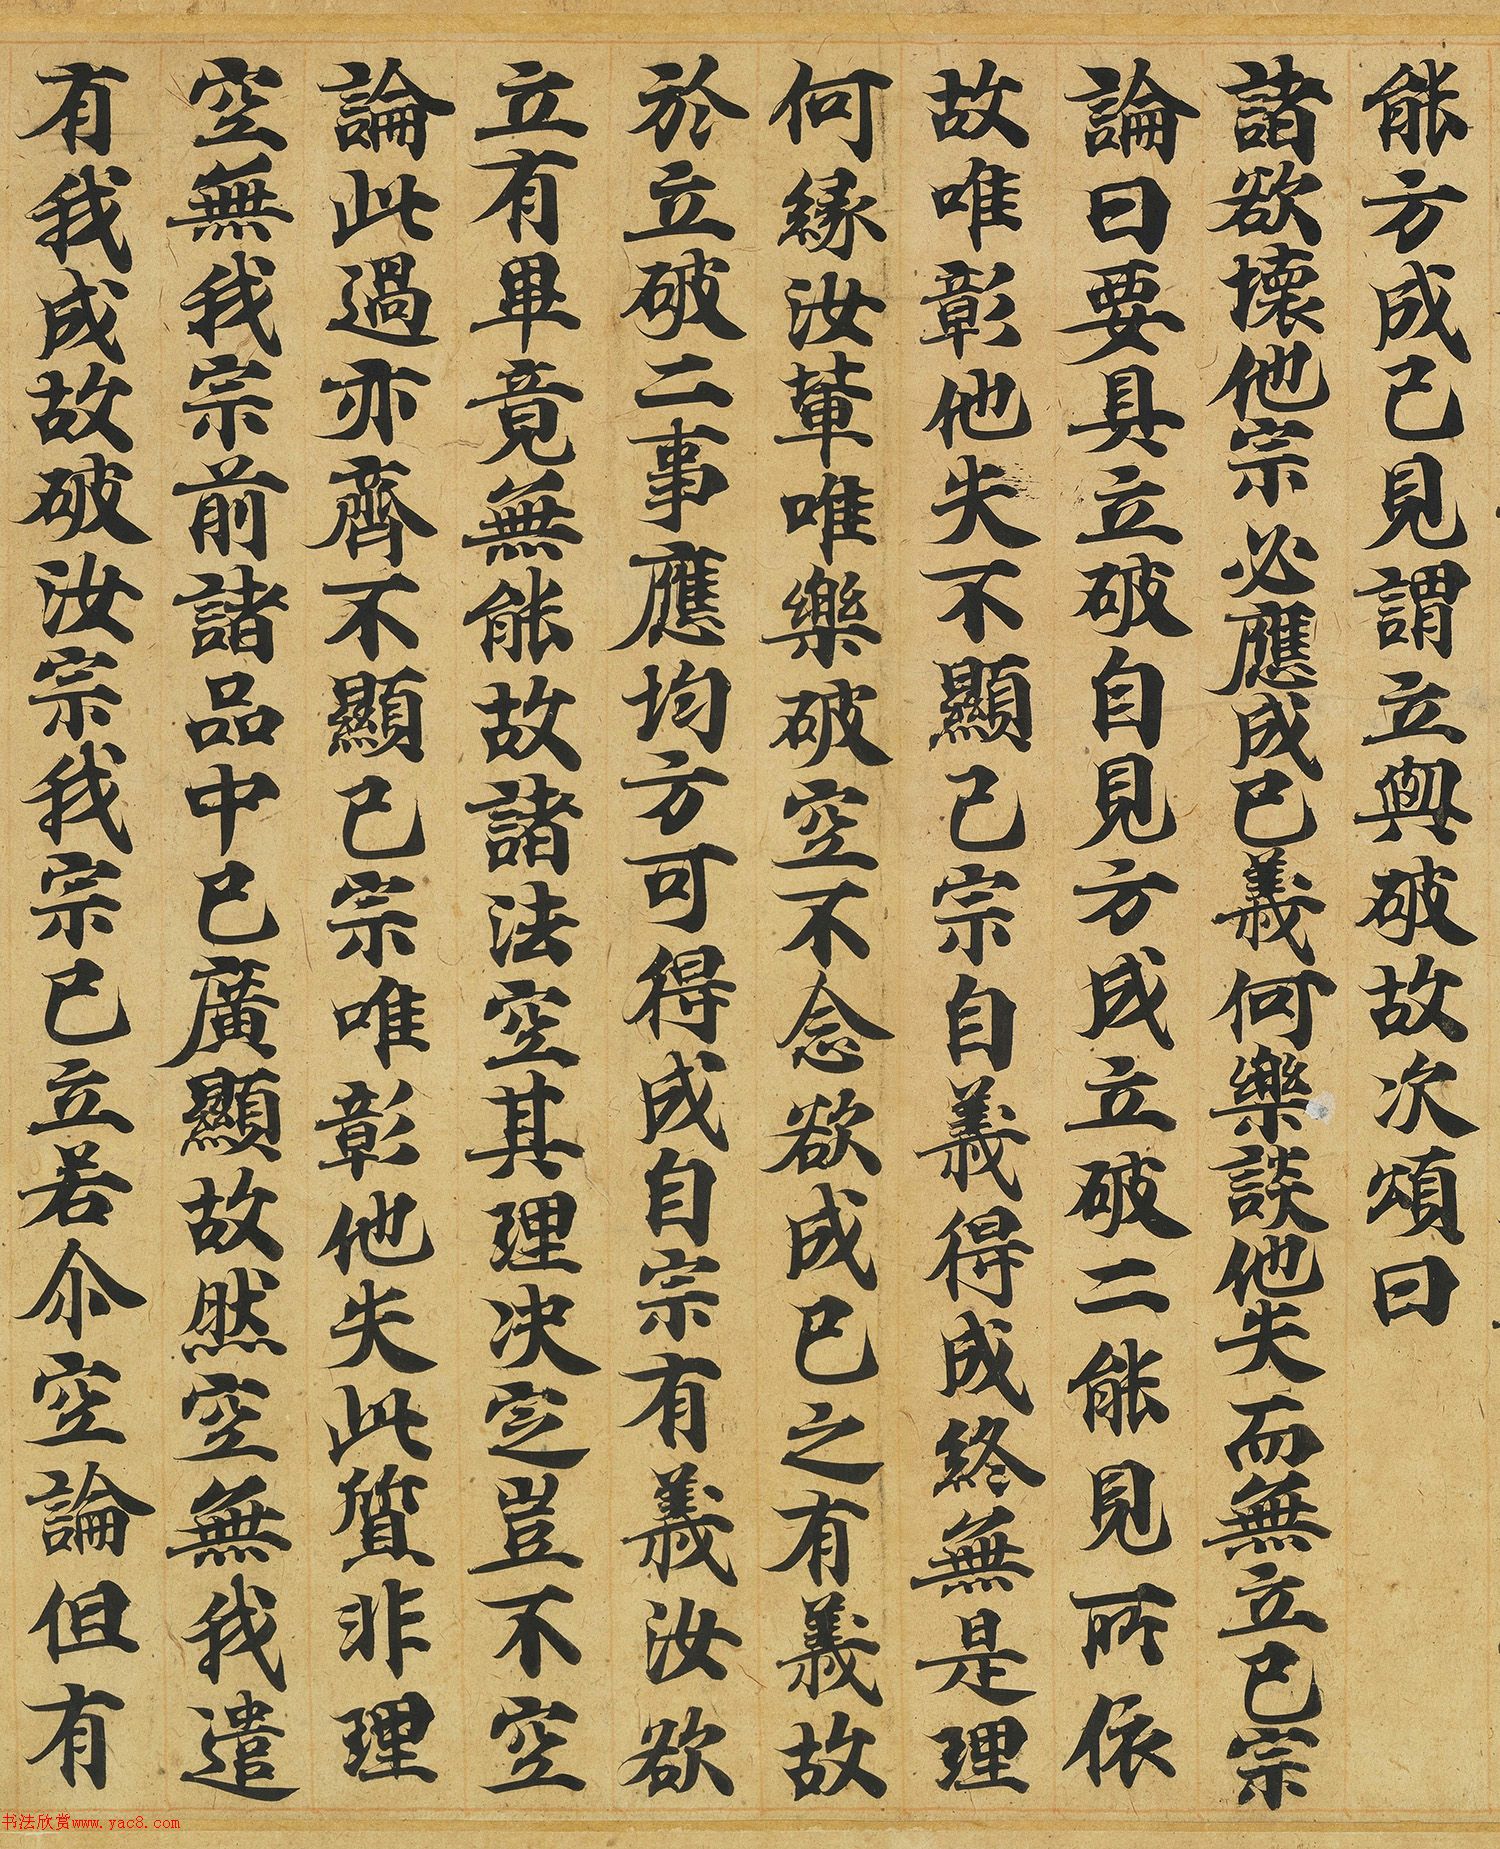 能方成己見謂立與破故次頌曰
諸欲壞他宗必應成己義何樂談他失而無立己宗
論曰要具立破自見方成立破二能見所依
故唯彰他失不顯己宗自義得成終無是理
何緣汝輩唯樂破空不念欲成己之有義故
於立破二事應均方可得成自宗有義汝欲
立有畢竟無能故諸法空其理决定豈不空
論此過亦齊不顯己宗唯彰他失此質非理
空無我宗前諸品中已廣顯故然空無我遣
有我成故破汝宗我宗已立若尒空論但有
书法欣赏www.yac8.com